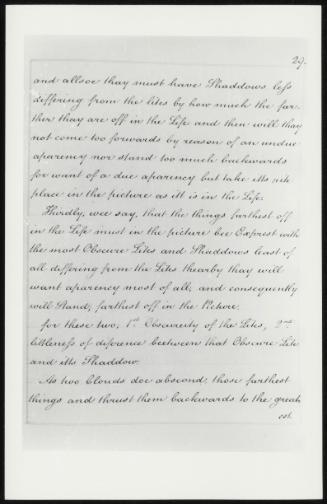 29.
and allsoe thay must have Shaddows less
differing from the lites by how much the far-
ther thay are off in the Life and then will thay
not come too forwards by reason of an undue
aparency nor stand too much backwards
for want of a due aparency but take itts
place in the picture as itt is in the Life.
Thirdly, wee say, that the things furthest off
in the Life must in the picture bee Exprest with
the most Obscure Lites and Shaddows least of
all differing from the Lites thearby thay will
want aparency most of all, and consequently
will Stand, farthest off in the Picture.
for these two, 1st Obscurity of the Lites, 2nd
littleness of diference between that Obscure Lite
and itts Shaddow.
As two Clouds doe abscond, those furthest
things and thrust them backwards to the great-
est.